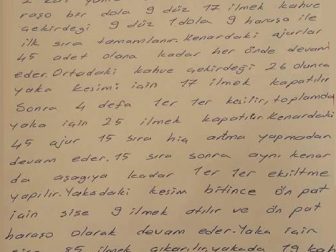 raşo bir dola 9 düz 17 ilmek kahve
çekirdeği 9 düz 1 dola 9 haraşo ile
ilk sıra tamamlanır. Kenardaki ajurlar
45 adet olana kadar her önde devam
eder. Ortadaki kahve çekirdeği 26 olunca
yaka kesimi için 17 ilmek kapatılır
Sonra 4 defa 1er 1er kesilir, toplamda
yaka için 25 ilmek kapatılır. Kenardaki
45 ajur 15 sıra hiç artma yapmadan
devam eder. 15 sıra sonra aynı kenar
da aşağıya kadar 1er 1er eksiltme
yapılır. Yakadaki kesim bitince ön pat
için şişe 9 ilmek atılır ve ön pat
haraşo olarak devam eder. Yaka için
85 ilmek çıkarılır, yakada 19